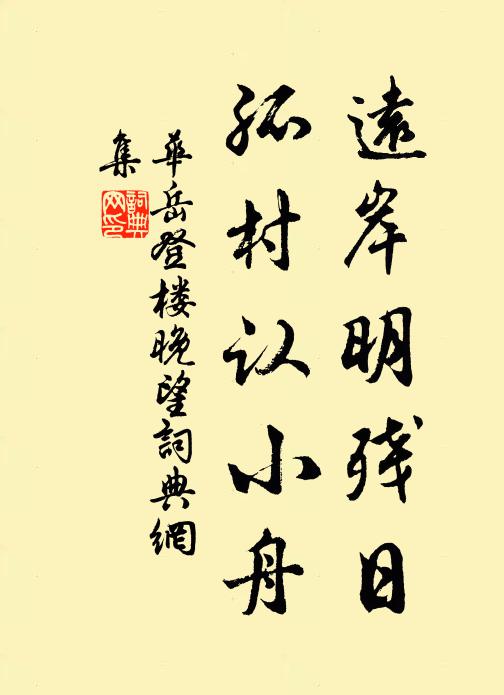 遠岸明残日
孤村认小舟
華岳登楼晚望詞典網
集
詞典
网印